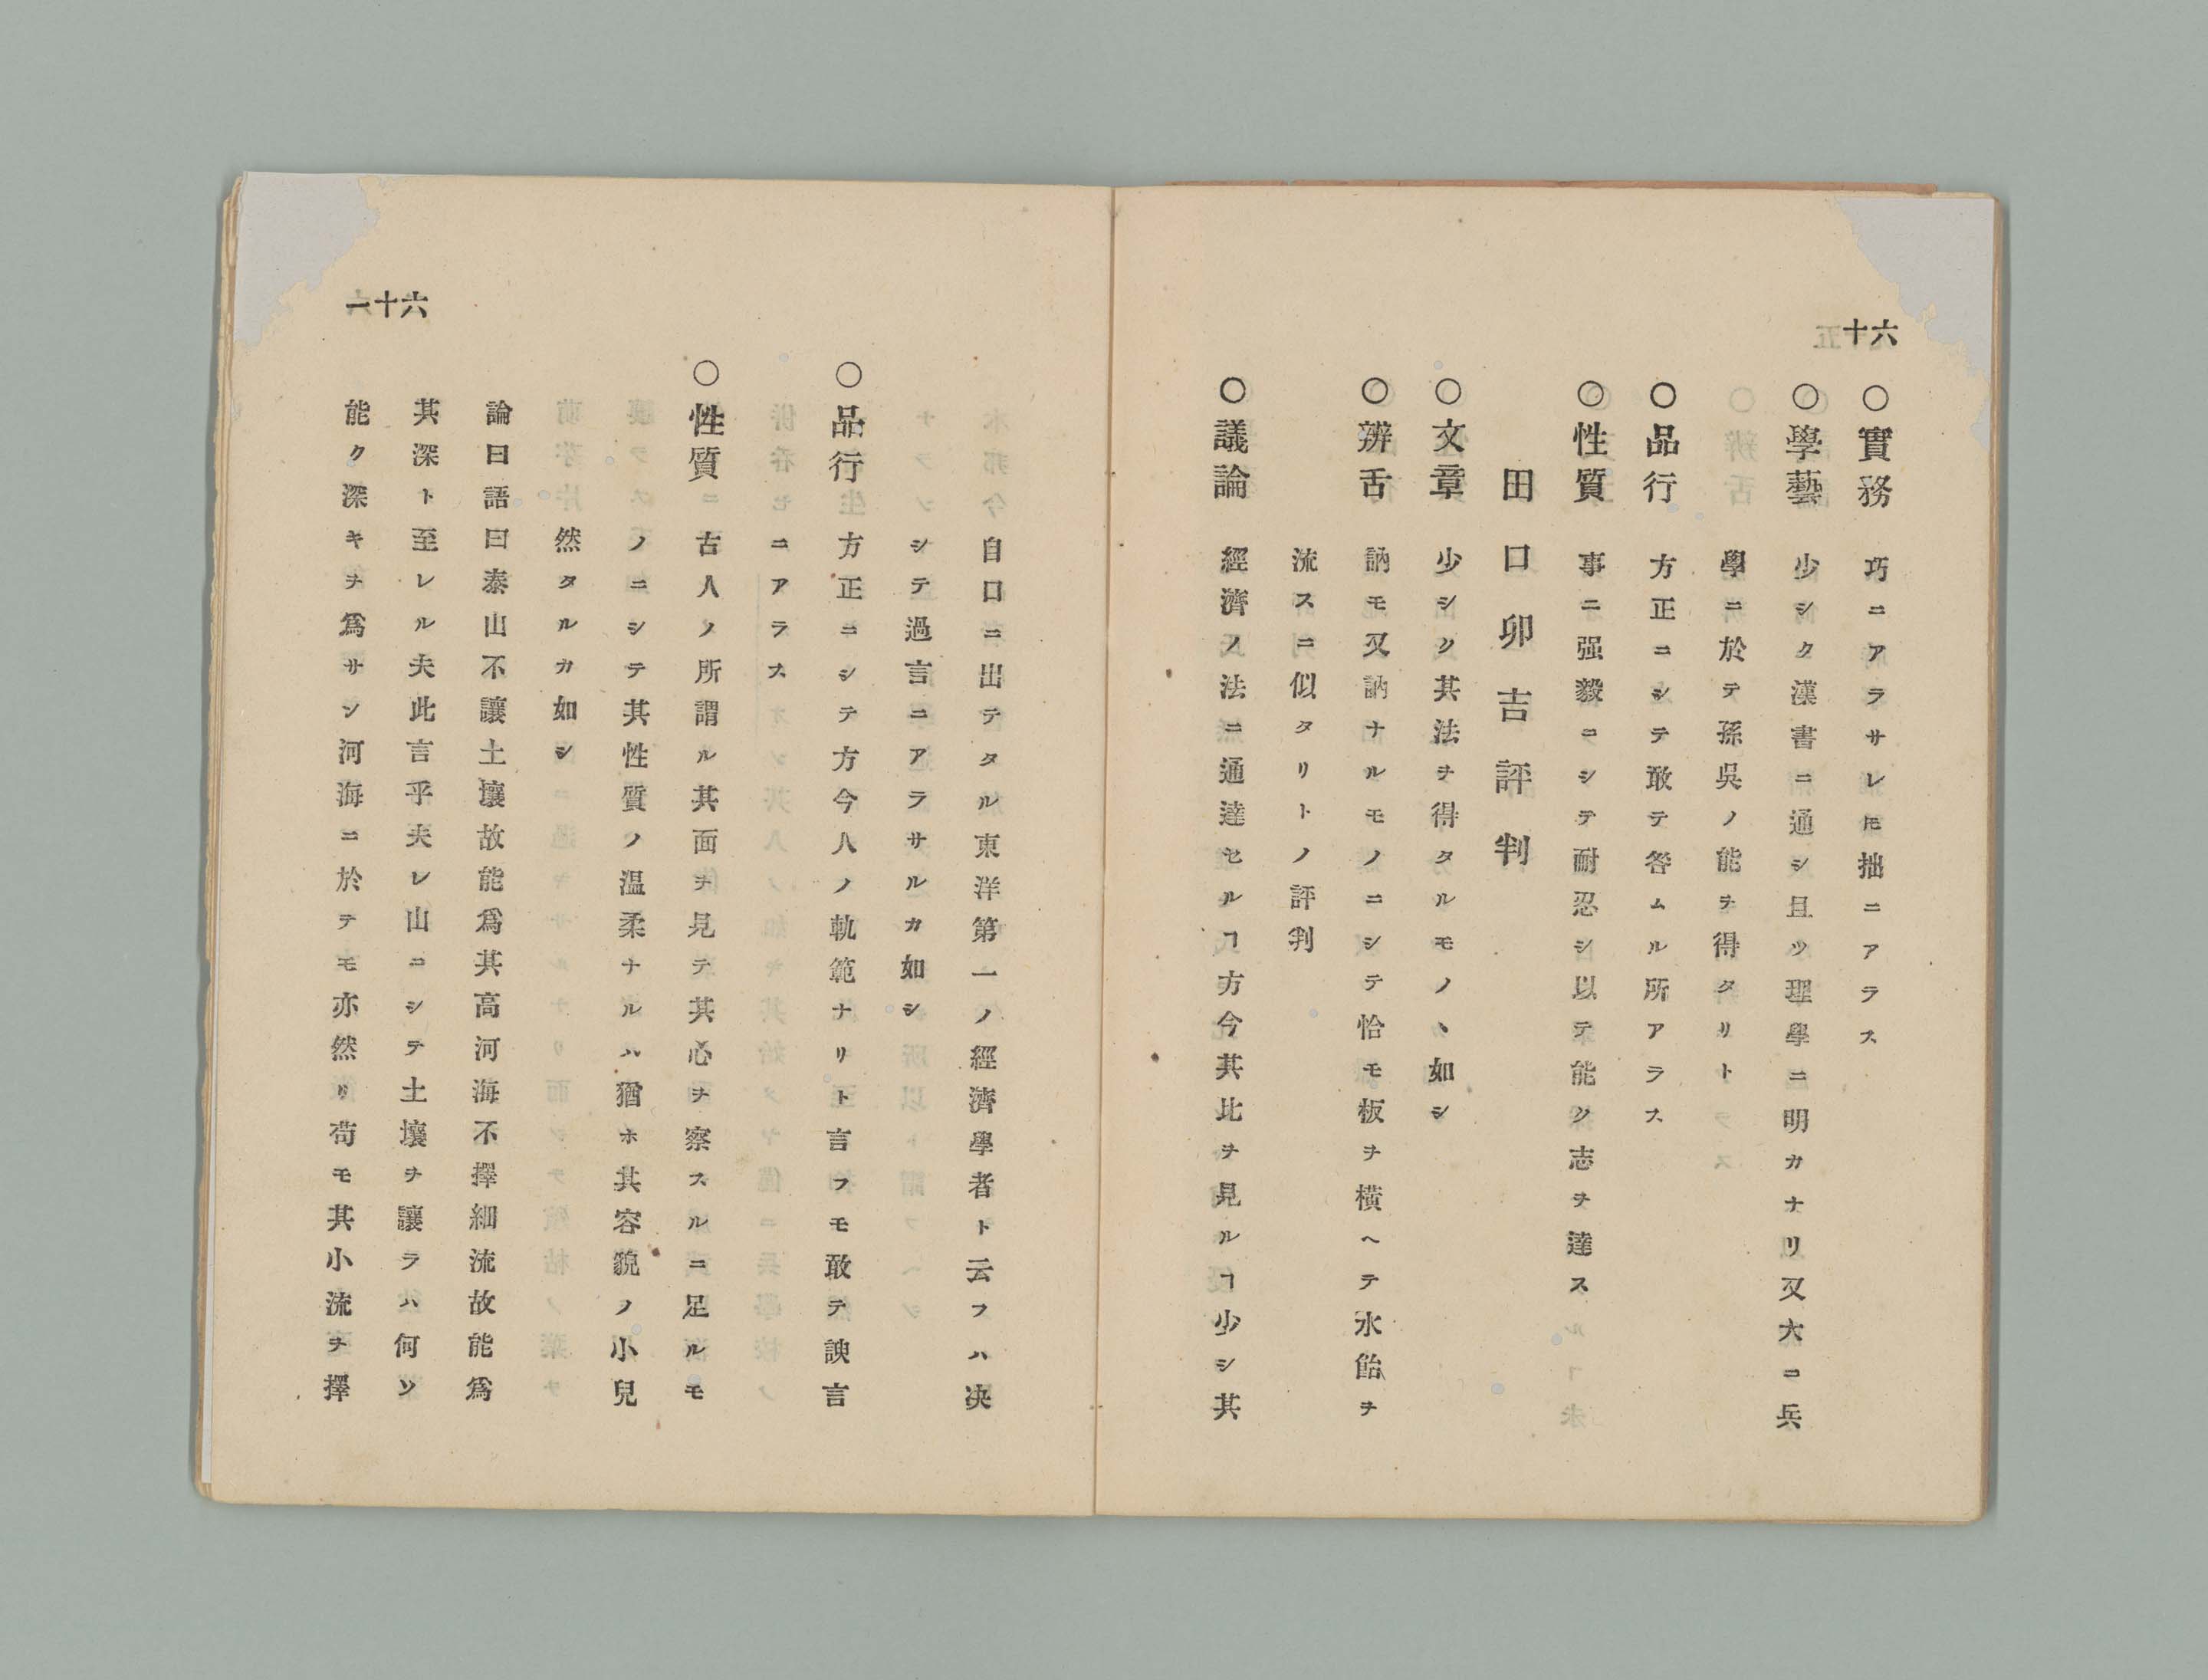 六十
○實務 巧ニアラサレ𪜈拙ニアラス
○學藝 少シク漢書ニ通シ且ツ理學ニ明カナリ又大ニ兵
學ニ於テ孫吳ノ能ヲ得タリト
○品行 方正ニシテ敢テ咎ムル所アラス
○性質 事ニ强毅ニシテ耐忍シ以テ能ク志ヲ達ス
田口卯吉評判
○文章 少シク其法ヲ得タルモノヽ如シ
○辨舌 訥モ又訥ナルモノニシテ恰モ板ヲ橫ヘテ水飴ヲ
流スニ似タリトノ評判
○議論 經濟ノ法ニ通達セルヿ方今其比ヲ見ルヿ少シ其
六十一
自口ニ出テタル東洋第一ノ經濟學者ト云フハ决
シテ過言ニアラサルカ如シ
○品行 方正ニシテ方今人ノ軌範ナリト言フモ敢テ諛言
ニアラス
○性質 古人ノ所謂ル其面ヲ見テ其心ヲ察スルニ足ルモ
ノニシテ其性質ノ温柔ナルハ猶ホ其容貌ノ小兒
然タルカ如シ
論曰語曰泰山不讓土壤故能爲其高河海不擇細流故能爲
其深ト至レル夫此言乎夫レ山ニシテ土壤ヲ讓ラハ何ソ
能ク深キヲ爲サシ河海ニ於テモ亦然リ苟モ其小流ヲ擇